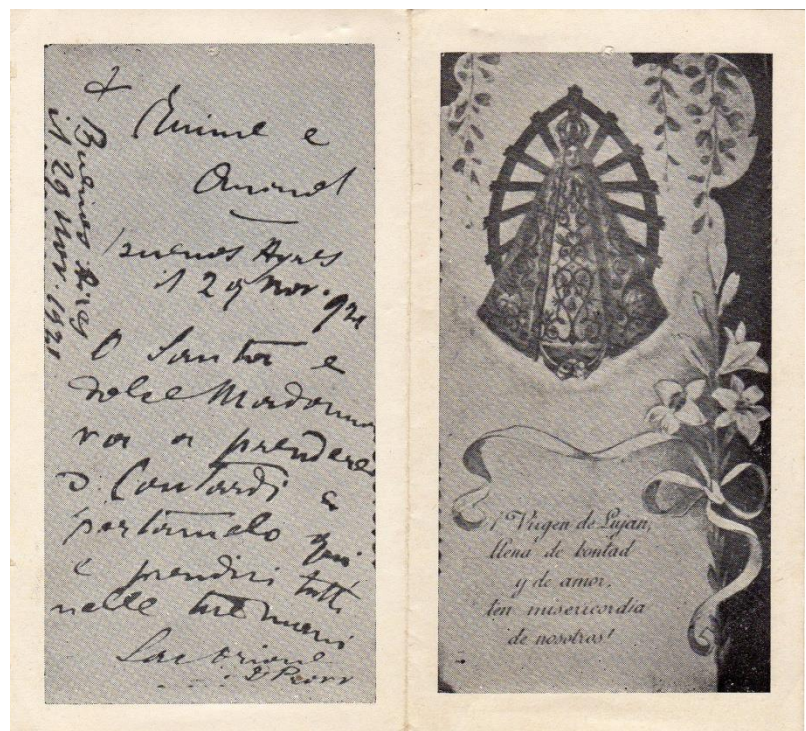 Buenos Aires
il 29 Nov. 1921
Anime e
Anime!
Buenos Ayres
il 29 Nov. 921
O Santa e
dolce Madonna
va a prendere
D. Contardi e
portamelo qui
e prendici tutti
nelle tue mani
Sac Orione
¡Virgen de Lujan,
llena de bondad
y de amor,
ten misericordia
de nosotros!